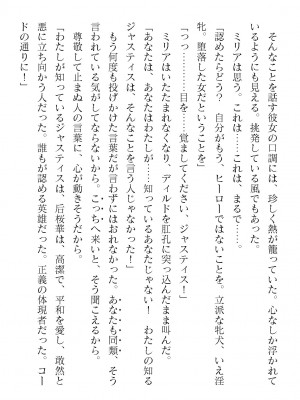 そんなことを話す彼女の口調には、珍しく熱が籠っていた。心なしか浮かれて
いるようにも見える。挑発している風でもあった。
ミリアは思う。これは……これは、まるで……。
「認めたらどう？　自分がもう、ヒーローではないことを。立派な牝犬、いえ淫
牝。堕落した女だということを」
「っっ………目を……覚ましてください、ジャスティス！」
ミリアはいたたまれなくなり、ディルドを肛孔に突き刺さったまま叫んだ。
「あなたは、あなたはわたしが……知っているあなたじゃない！　わたしの知る
ジャスティスは、そんなことを言う人じゃなかった」
もう何度も投げかけた言葉だが言わずにはおれなかった。あなたも同類、そう
言われている気がしてならないから。こっちへ来いと、そう聞こえるから。
尊敬して止まぬ人の言葉に、心が動きそうだから。
「わたしが知っているジャスティスは、后桜華は、高潔で、平和を愛し、敢然と
悪に立ち向かう人だった。誰もが認める英雄だった。正義の体現者だった。コー
ドの通りに！」